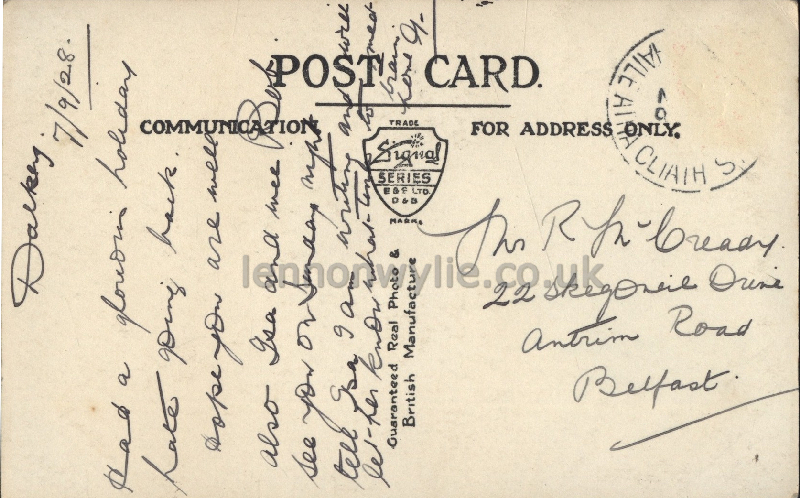 POST CARD.
COMMUNICATION.
FOR ADDRESS ONLY.
TRADE
Signal
SERIES
E&S LTD.
D&B
MARK.
Guaranteed Real Photo &
British Manufacture
AILE ATHA CLIATH S
Dalkey
7/9/28.
Had a glorious holiday
hate going back.
Hope you are well
also Isa and wee Bob
see you on Sunday night
tell Isa I am writing and will
let her know what time to meet
train
love
Mrs R McCready.
22 Skegoneil Drive
Antrim Road
Belfast.
lennonwylie.co.uk